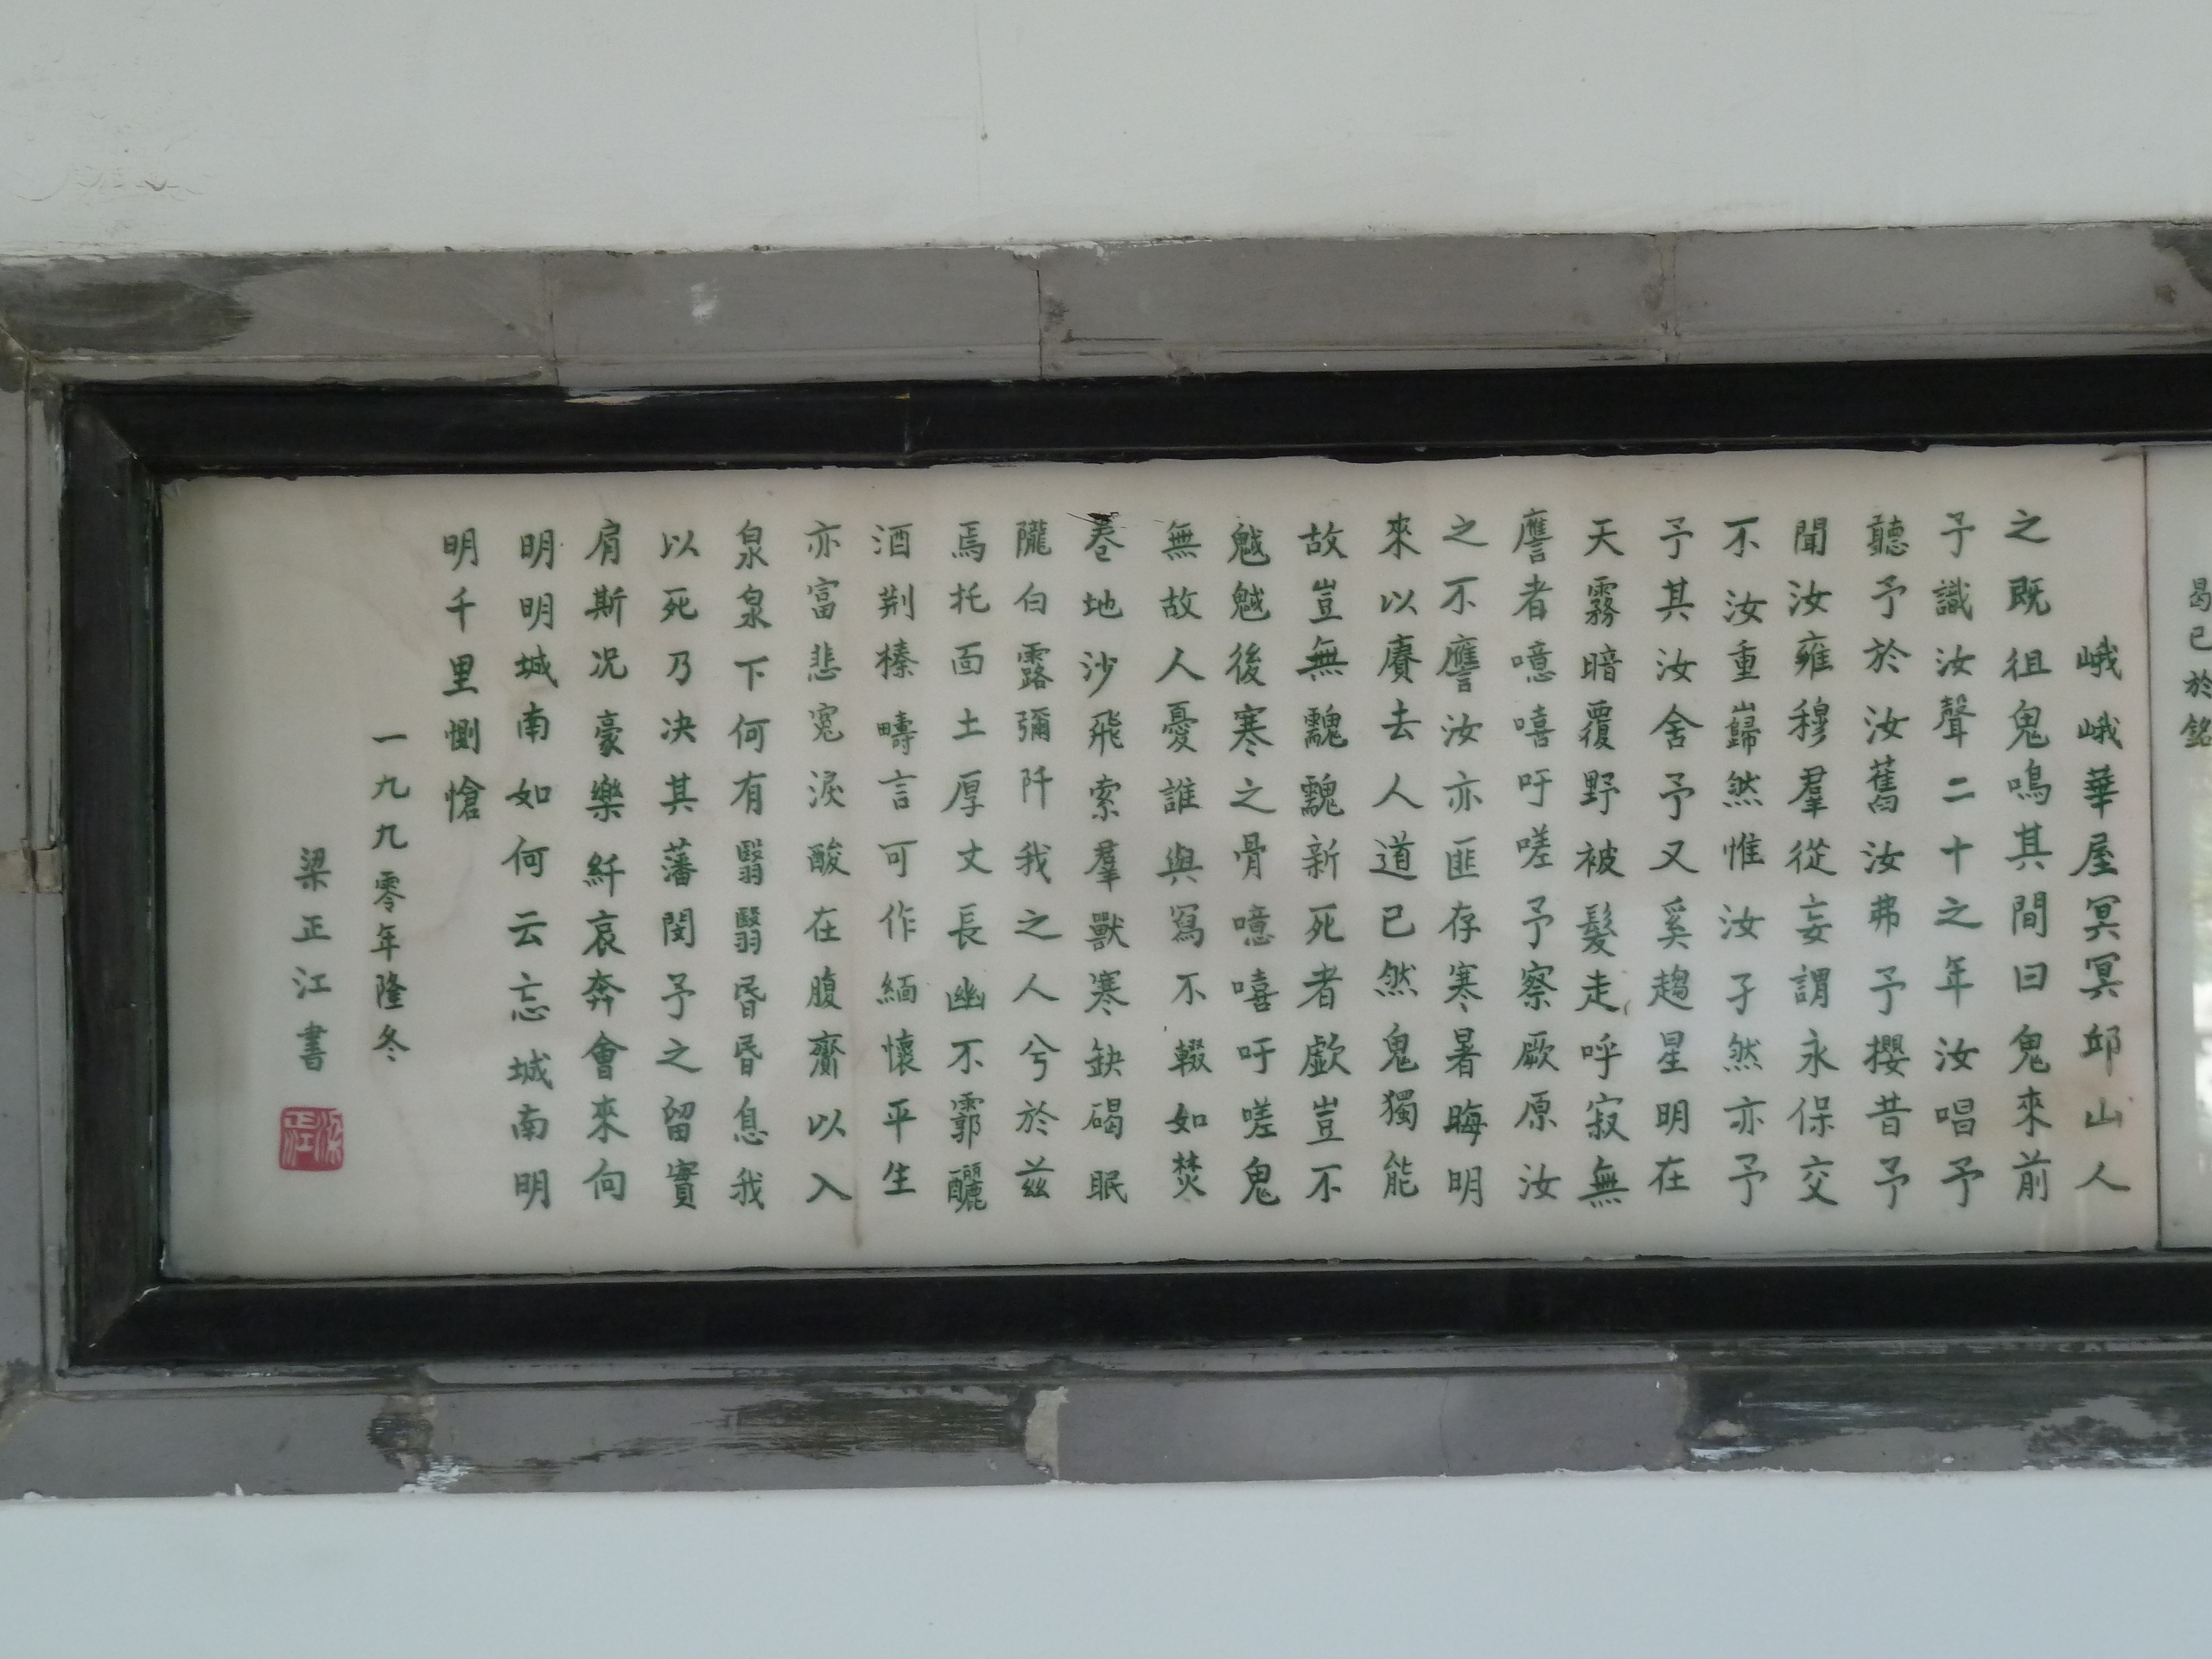 曷已於銘
峨峨華屋冥冥邱山人
之既徂鬼鳴其間曰鬼來前
予識汝聲二十之年汝唱予
聽予於汝舊汝弗予攖昔予
聞汝雍穆羣從妄謂永保交
不汝重巋然惟汝孑然亦予
予其汝舍予又奚趨星明在
天霧暗覆野被髮走呼寂無
譍者噫嘻吁嗟予察厥原汝
之不譍汝亦匪存寒暑晦明
來以賡去人道已然鬼獨能
故豈無覊覊新死者歔豈不
魆魆後寒之骨噫嘻吁嗟鬼
無故人憂誰與寫不輟如焚
卷地沙飛索羣獸寒缺碣眠
隴白露彌阡我之人兮於茲
焉托面土厚丈長幽不霩釃
酒荆榛疇言可作緬懷平生
亦富悲寃淚酸在腹齎以入
泉泉下何有翳翳昏昏息我
以死乃决其藩閔予之留實
肩斯况豪樂紆哀奔會來向
明明城南如何云忘城南明
明千里惻愴
一九九零年隆冬
梁正江書